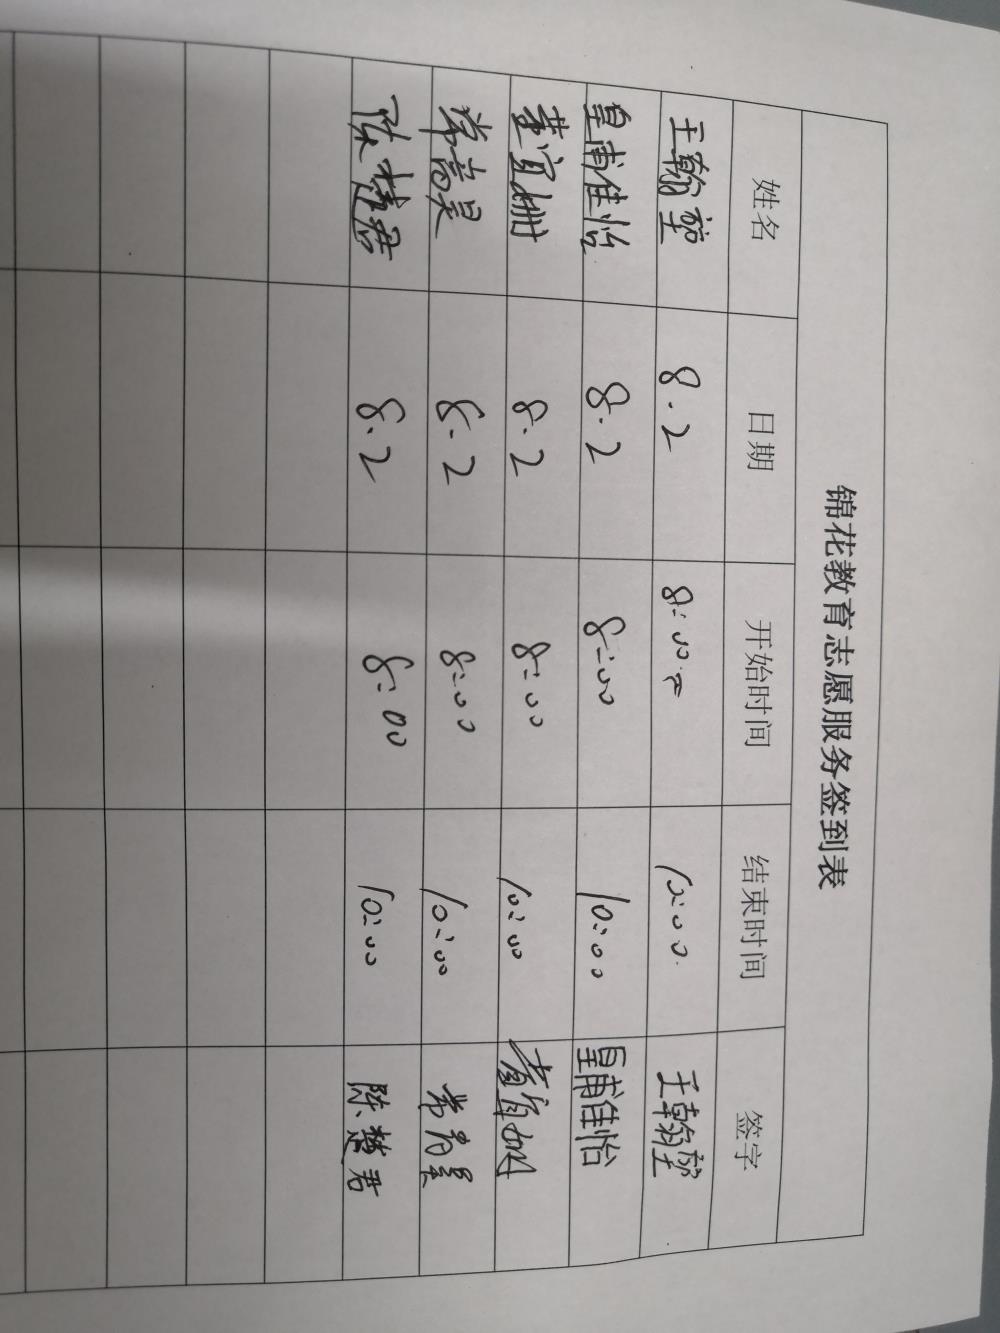 锦花教育志愿服务签到表
姓名 日期 开始时间 结束时间 签字
王翰堃 8.2 8:00 10:00 王翰堃
皇甫佳怡 8.2 8:00 10:00 皇甫佳怡
董宜姗 8.2 8:00 10:00
常高昊 8.2 8:00 10:00 常高昊
陈楚君 8.2 8:00 10:00 陈楚君